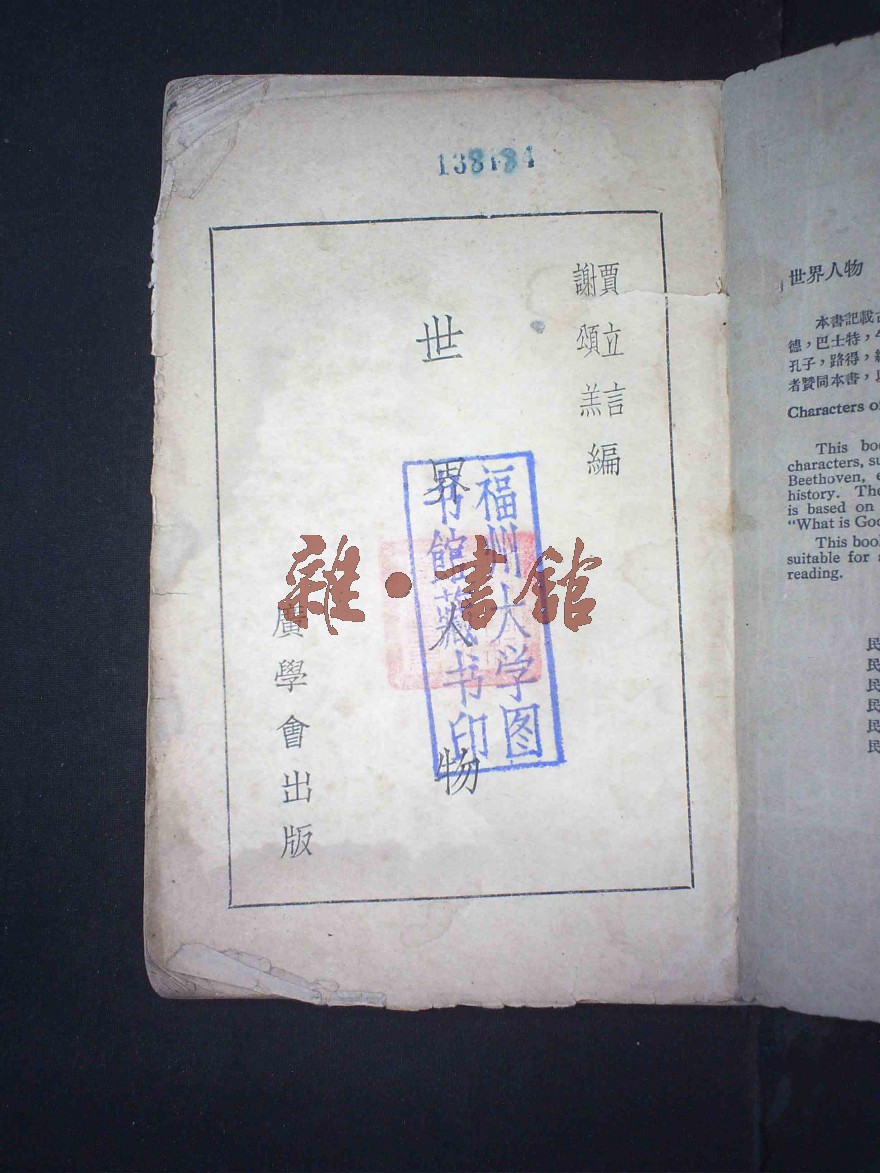 138184
賈立言
謝頌羔編
世界人物
廣學會出版
福州大学图
书館藏书印
雜·書館
世界人物
本書記載
德，巴士特，
孔子，路得，
者贊同本書，
Characters of
This boo
characters, su
Beethoven, e
history. The
is based on
"What is God
This book
suitable for a
reading.
民
民
民
民
民
民